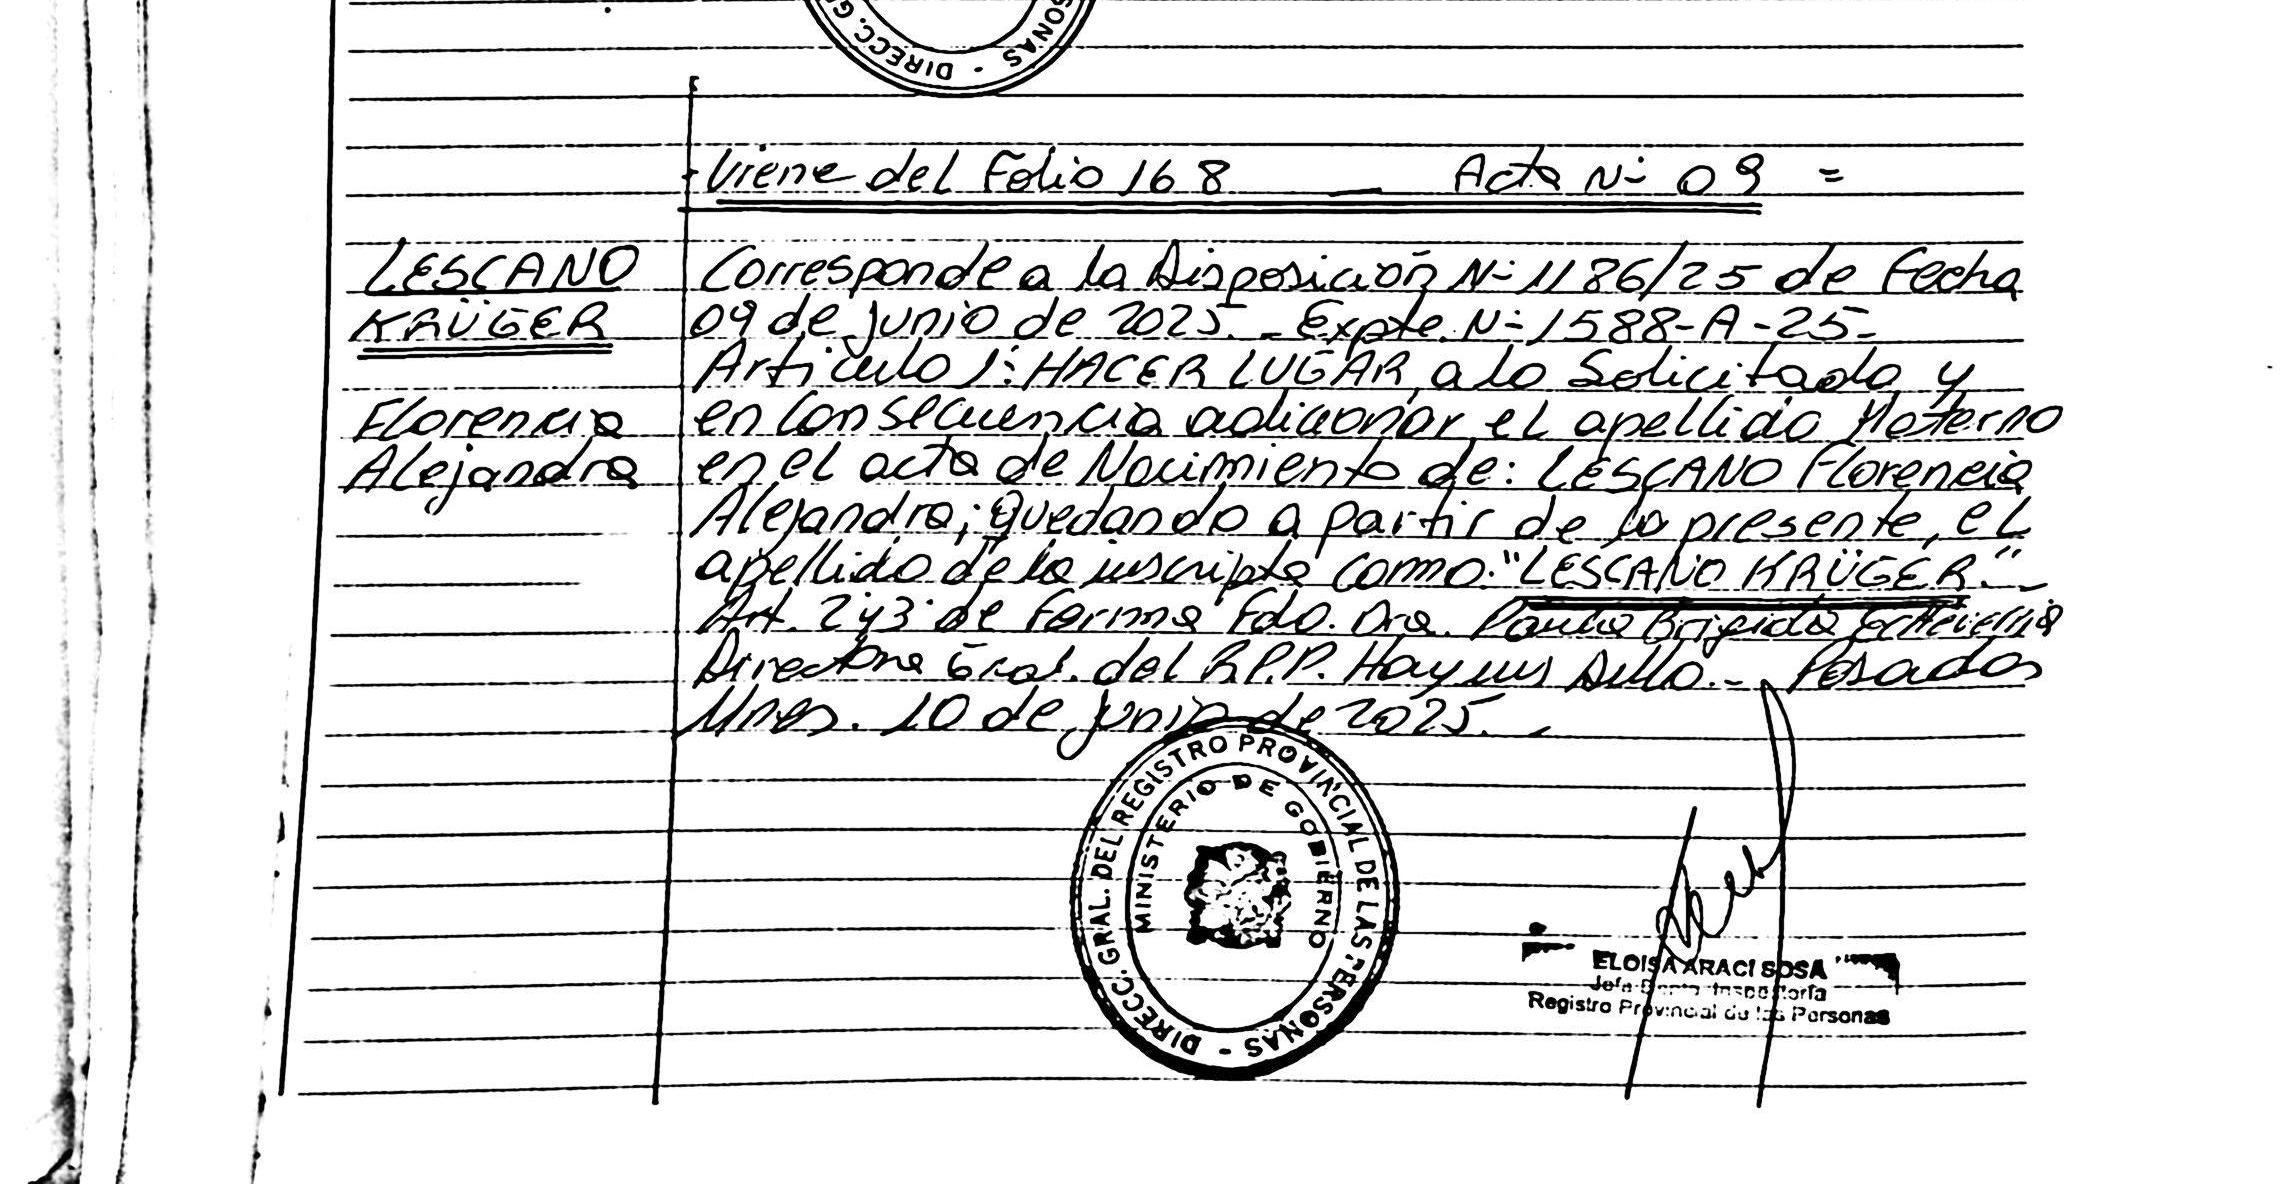 DIRECC. GR
SONAS -
Viene del Folio 168 _ Acta Nº 09 =
LESCANO
KRÜGER
Florencia
Alejandra
Corresponde a la Disposición Nº 1186/25 de Fecha
09 de junio de 2025._ Expte. Nº 1588-A-25-
Articulo 1º: HACER LUGAR, a lo Solicitado y
en Consecuencia adicionar el apellido Materno
en el acta de Nacimiento de: LESCANO Florencia
Alejandra; quedando a partir de la presente, el
apellido de la inscripta como: "LESCANO KRÜGER."_
Art. 2º y 3º de Forma Fdo. Dra. Paula Brigida Echeverria
Directora Gral. del R.P.P. Hay un Sello._ Posadas
Mnes. 10 de junio de 2025._
DIRECC. GRAL. DEL REGISTRO PROVINCIAL DE LAS PERSONAS -
MINISTERIO DE GOBIERNO
ELOISA ARACI SOSA
Jefa Dpto. Inspectoría
Registro Provincial de las Personas